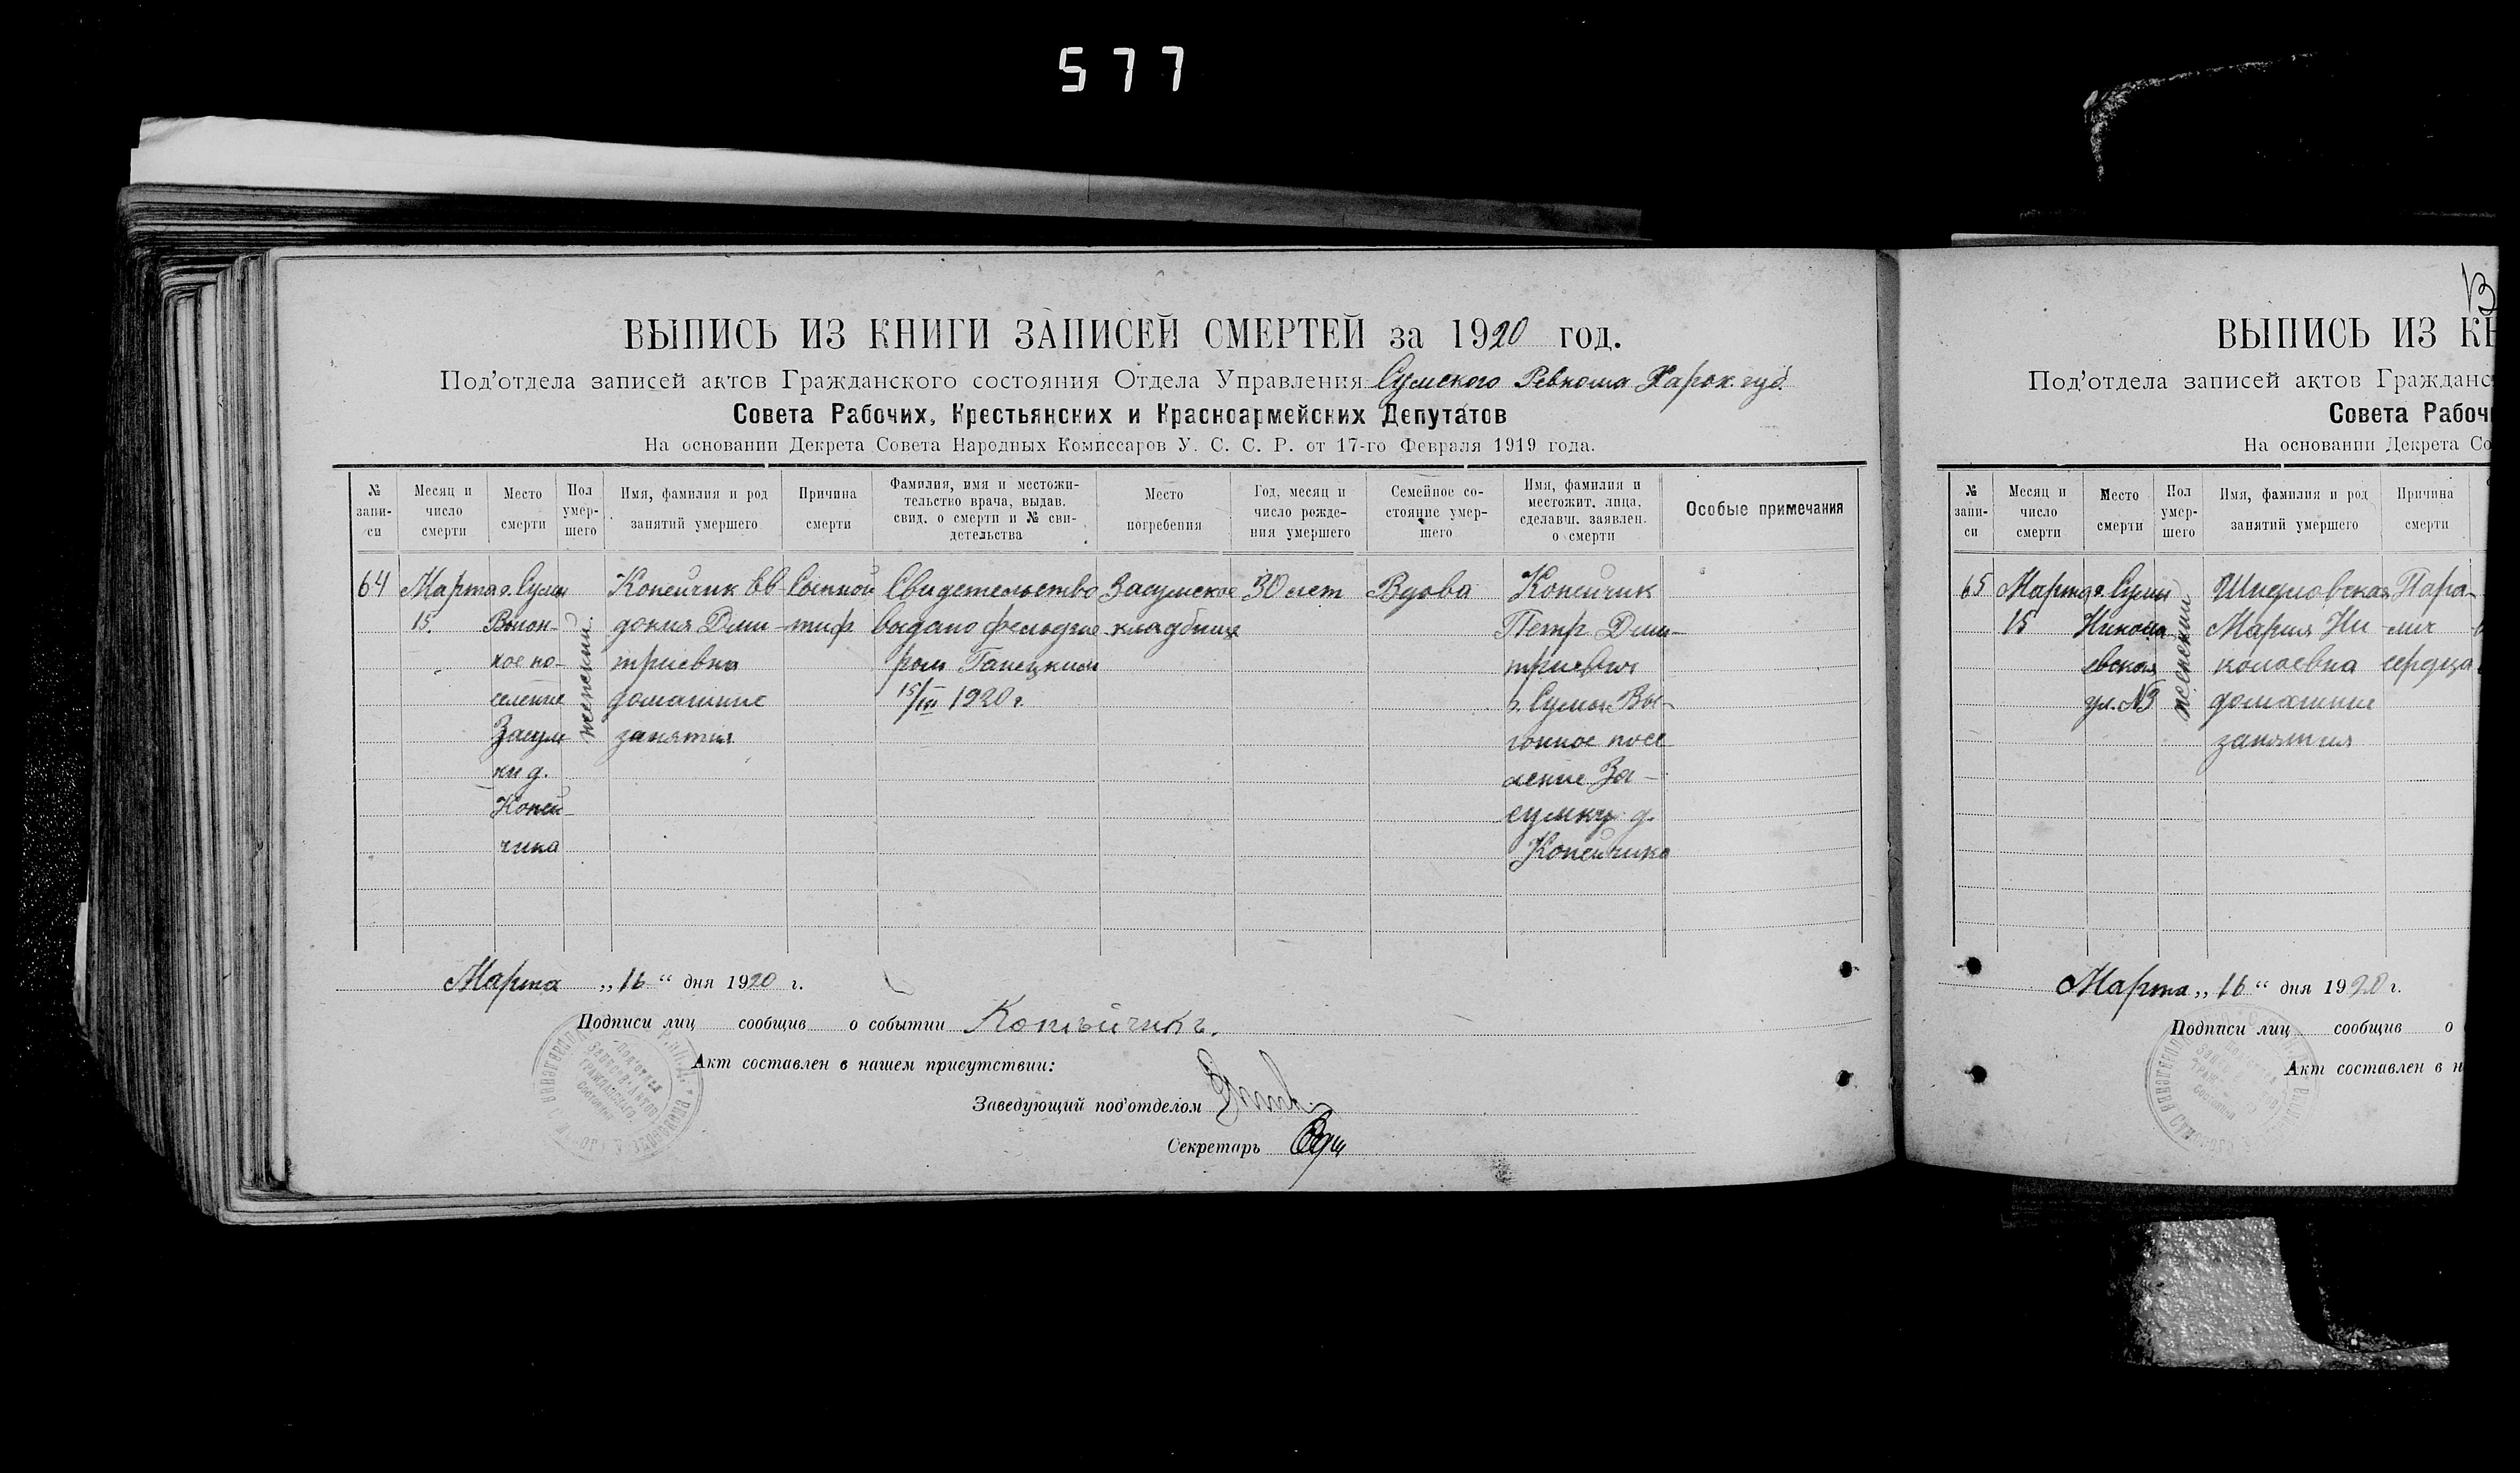 577
ВЫПИСЬ ИЗ КНИГИ ЗАПИСЕЙ СМЕРТЕЙ за 1920 год.
Под'отдела записей актов Гражданского состояния Отдела Управления Сумского Ревкома Харьк. губ.
Совета Рабочих, Крестьянских и Красноармейских Депутатов
На основании Декрета Совета Народных Комиссаров У. С. С. Р. от 17-го Февраля 1919 года.
№ запи-
си
Месяц и
число
смерти
Место
смерти
Пол
умер-
шего
Имя, фамилия и род
занятий умершего
Причина
смерти
Фамилия, имя и местожи-
тельство врача, выдав.
свид. о смерти и № сви-
детельства
Место
погребения
Год, месяц и
число рожде-
ния умершего
Семейное со-
стояние умер-
шего
Имя, фамилия и
местожит. лица,
сделавш. заявлен.
о смерти
Особые примечания
64
Марта
15.
г. Сумы
ное по-
селение
Засум
ки д.
Копей-
чика
женский.
Копейчик Ев-
докия Дми-
триевна
домашние
занятия
Сыпной
тиф
Свидетельство
выдано фельдше
ром Ганецким
15/III 1920 г.
Засумское
кладбище
30 лет
Вдова
Копейчик
Петр Дми-
триевич
г. Сумы Вы-
гонное посе
ление За-
сумку д.
Копейчика
Марта „16“ дня 1920 г.
Подписи лиц сообщив о событии Копѣйчикъ.
Акт составлен в нашем присутствии:
Заведующий под'отделом
Секретарь
ВЫПИСЬ ИЗ КН
Под'отдела записей актов Гражданс
Совета Рабоч
На основании Декрета Со
№
запи-
си
Месяц и
число
смерти
Место
смерти
Пол
умер-
шего
Имя, фамилия и род
занятий умершего
Причина
смерти
65
Марта
15
г. Сумы
Никола
евская
ул. №3
женский
Мария Ни-
колаевна
домашние
занятия
Пара-
лич
сердца
Марта „16“ дня 1920 г.
Подписи лиц сообщив о
Акт составлен в н